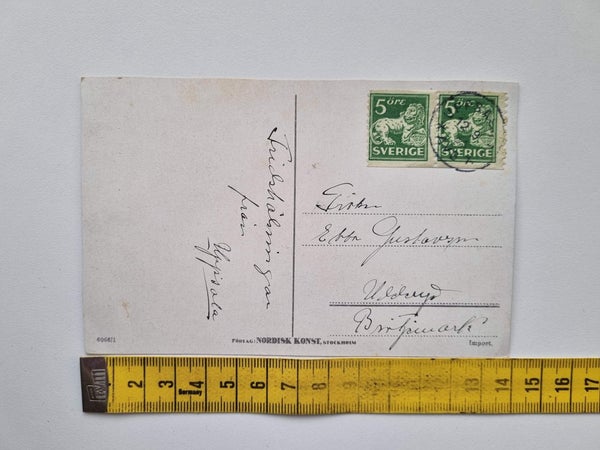 5 öre
SVERIGE
5 öre
SVERIGE
Fridshälsningar
från
Uppsala
Ebba
Brötjemark
6966/1
FÖRLAG: NORDISK KONST, STOCKHOLM
Import.
2 3 4 5 6 7 8 9 10 11 12 13 14 15 16 17
Germany